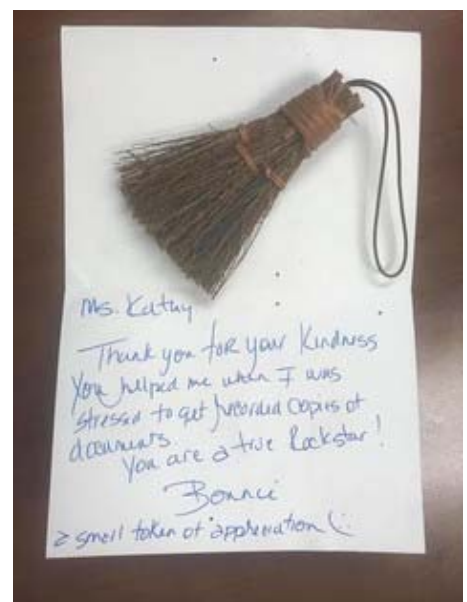 Ms. Kathy
Thank you for your Kindness
You helped me when I was
stressed to get recorded copies of
documents
You are a true Rockstar!
Bonnie
a small token of appreciation (: